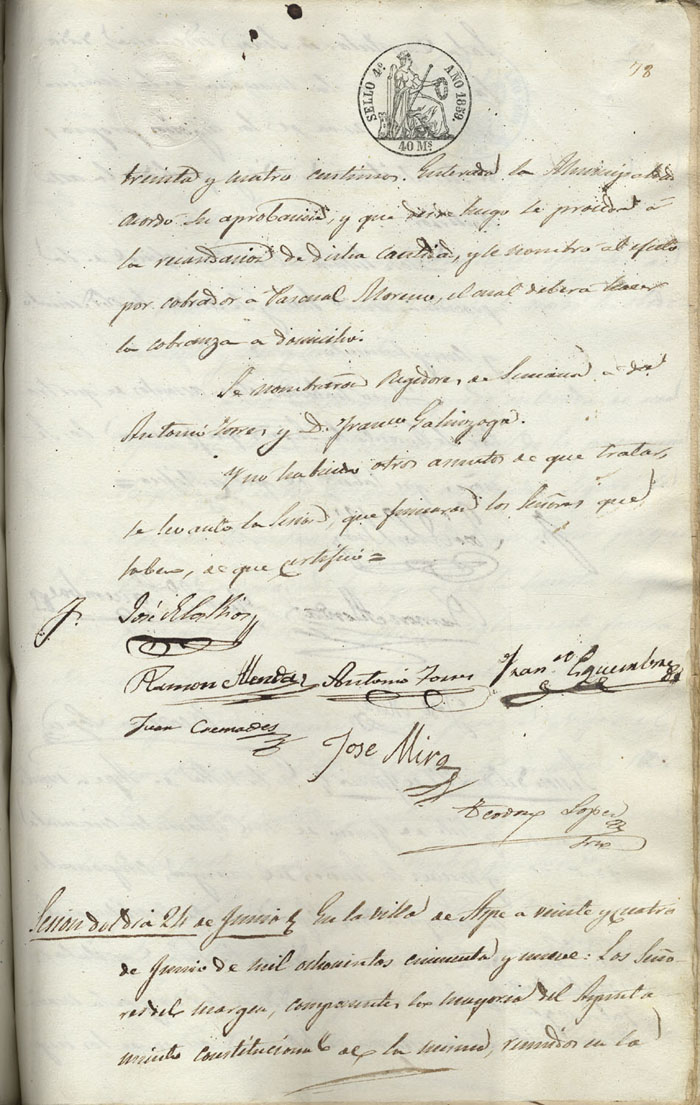 78
SELLO 4º AÑO 1859.
40 Ms
treinta y cuatro centimos. Enterada la Municipalidad
acordo su aprobacion, y que desde luego se proceda á
la recaudacion de dicha cantidad, y se nombró al efecto
por cobrador a Pascual Moreno, el cual deberá hacer
la cobranza a domicilio.
Se nombraron Regidores de Semana a Dn
Antonio Torres y D. Franco Galinzoga.
Y no habiendo otros asuntos de que tratar,
se levantó la Sesion, que firmaron los Señores que
saben, de que certifico=
José de los Rios
Ramon Antonio Torres Franco Esquembre
Juan Cremades
Jose Mira
Teodoro Lopez
Srio
Sesion del dia 24 de Junio En la villa de Aspe a veinte y cuatro
de Junio de mil ochocientos cincuenta y nueve: Los Seño
res del margen, componentes la mayoria del Ayunta
miento constitucional de la misma, reunidos en la